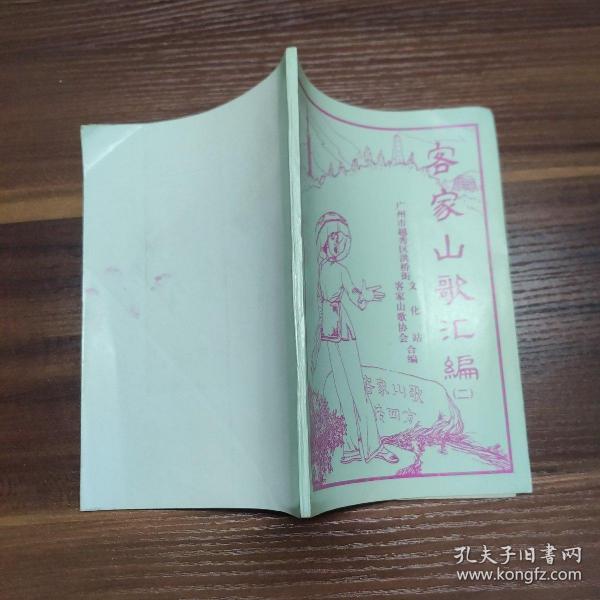 客家山歌汇编(二)
广州市越秀区洪桥街文化站
客家山歌协会
合编
客家山歌
传四方
孔夫子旧书网
www.kongfz.com